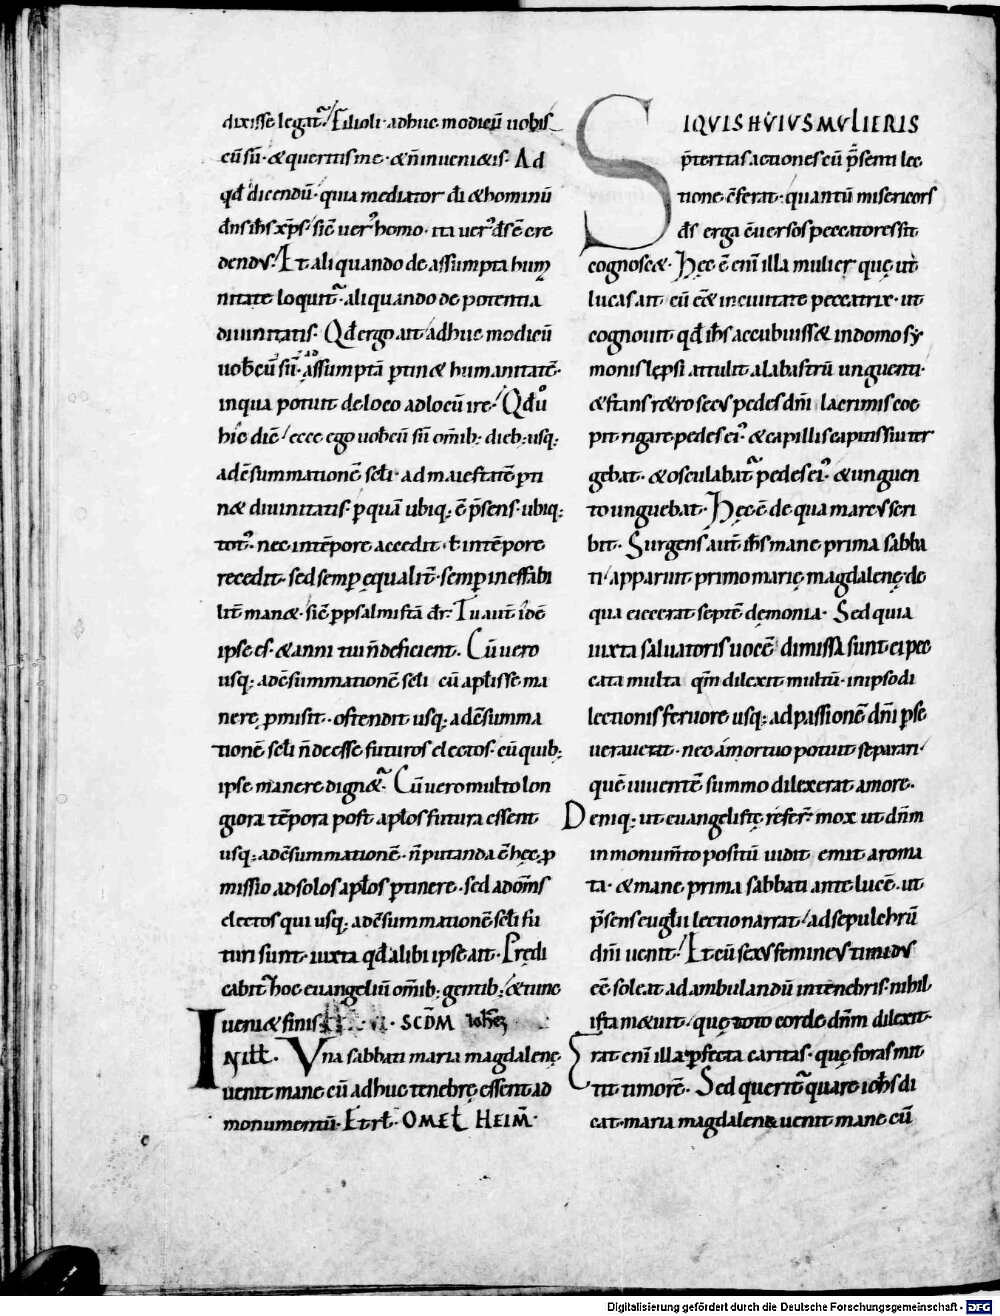 dixisse legat᷑. Filioli adhuc modicū uobis
cū sū. & queretis me. & n̄ inueni&is. Ad
qđ dicendū. quia mediator dī & hominū
dn̄s ihs xp̄s. sic̄ uerꝰ homo. ita uerꝰ ds̄ ē cre
dendus. Et aliquando de assumpta hum
nitate loquit᷑. aliquando de potentia
diuinitatis. Qđ ergo ait adhuc modicū
uob cū sū. ad assumptā ꝑtin& humanitatē.
in qua potuit de loco ad locū ire. Qđ ū
hic dic̄. ecce ego uob cū sū om̄ib; dieb; usq;
ad c̄summationē scl̄i. ad maiestatē ꝑti
n& diuinitatis. ꝑ quā ubiq; ē p̄sens. ubiq;
totꝰ. nec in tēpore accedit. ł in tēpore
recedit. sed semꝑ ęqualit̄. semꝑ ineffabi
lit̄ man&. sic̄ ꝑ psalmistā dr̄. Tu aut̄ idē
ipse es. & anni tui n̄ deficient. Cū uero
usq; ad c̄summationē scl̄i cū apl̄is se ma
nere ꝓmisit. ostendit usq; ad c̄summa
tionē scl̄i n̄ deesse futuros electos. cū quib;
ipse manere dignet᷑. Cū uero multo lon
giora tēpora post apl̄os futura essent
usq; ad c̄summationē. n̄ putanda ē hęc ꝓ
missio ad solos apl̄os ꝑtinere. sed ad om̄s
electos qui usq; ad c̄summationē scl̄i fu
turi sunt. iuxta qđ alibi ipse ait. Prędi
cabit᷑ hoc euangeliū om̄ib; gentib; & tunc
ueni& finis. SCD̄M Ioh̄ez
IN illt̄. Vna sabbati maria magdalenę
uenit mane cū adhuc tenebrę essent ad
monumentū. Et rł. OMEŁ HEIM̄.
SI QVIS HVIVS MVLIERIS
p̄teritas actiones cū p̄senti lec
tione c̄ferat. quantū misericors
ds̄ erga c̄uersos peccatores sit
cognosc&. Hęc ē enī illa mulier quę ut
lucas ait cū ēet in ciuitate peccatrix. ut
cognouit qđ ihs accubuiss& in domo sy
monis lepsi attulit alabastrū unguenti.
& stans retro secus pedes dn̄i lacrimis coe
pit rigare pedes eiꝰ. & capillis capitis sui ter
gebat. & osculabat᷑ pedes eiꝰ. & unguen
to unguebat. Hęc ē de qua marcus scri
bit. Surgens aut̄ ihs mane prima sabba
ti apparuit primo marię magdalenę de
qua eiecerat septē demonia. Sed quia
iuxta saluatoris uocē dimissa sunt ei pec
cata multa qm̄ dilexit multū. in ipso di
lectionis feruore usq; ad passionē dn̄i ꝑse
uerauerat. nec a mortuo potuit separari
quē uiuentē summo dilexerat amore.
Deniq; ut euangelistę refer̄. mox ut dn̄m
in monum̄to positū uidit emit aroma
ta. & mane prima sabbati ante lucē. ut
p̄sens eugl̄ii lectio narrat. ad sepulchrū
dn̄i uenit. Et cū sexus femineus timidus
eē soleat ad ambulandū in tenebris. nihil
ista m&uit. quę toto corde dn̄m dilexit.
Erat enī illa ꝑfecta caritas. quę foras mit
tit timorē. Sed querit᷑ quare ioh̄s di
cat. maria magdalene uenit mane cū